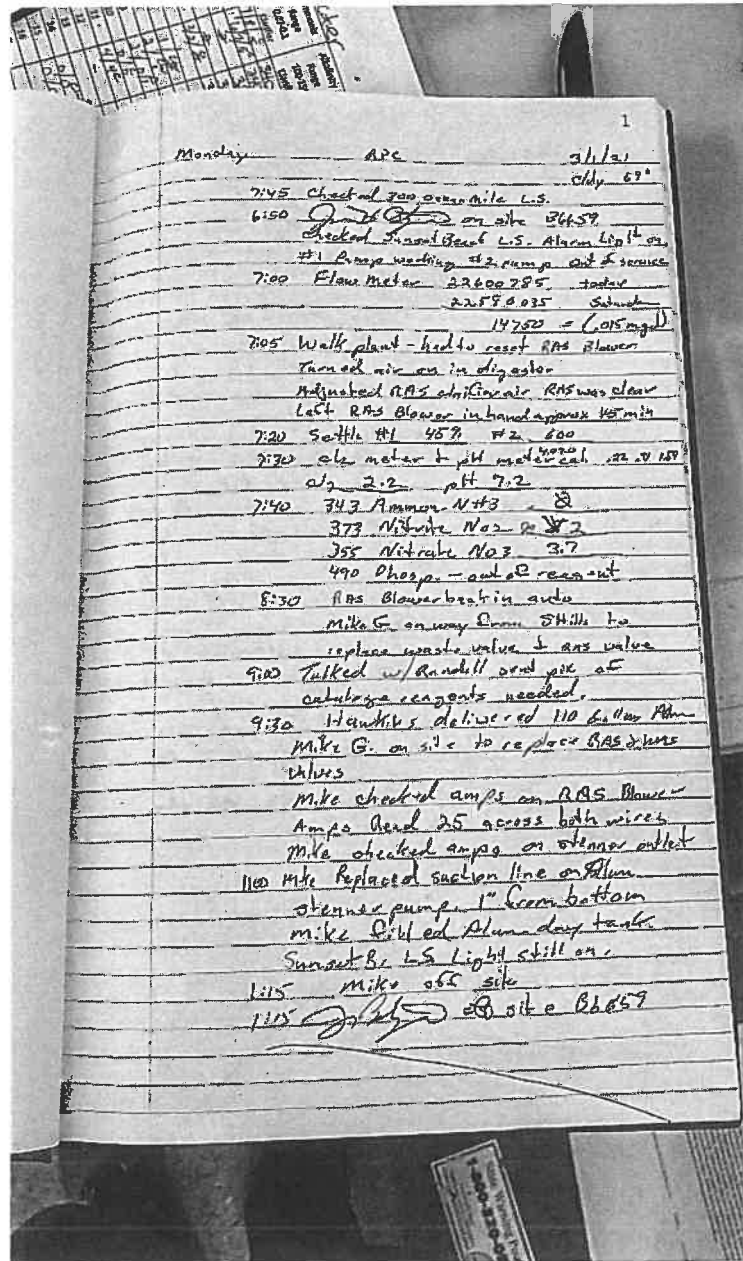 1
Monday APC 3/1/21
cldy 69°
7:45 Checked 300 ocean mile L.S.
6:50 on site B6659
Checked Sunset Beach L.S. Alarm Light on,
#1 Pump working #2 pump out of service
7:00 Flow Meter 22600785 today
Saturda
14750 = (.015 mgd)
7:05 Walk plant - had to reset RAS Blower
Turned air on in digestor
Adjusted RAS air RAS was clear
Left RAS Blower in hand approx 45 min
7:20 Settle #1 45% #2 600
7:30 cl2 meter & pH meter cal .22
cl2 2.2 pH 7.2
7:40 343 Ammon. N#3
373 Nitrate No2 2
355 Nitrate No3 3.7
490 Phosp. - out of reagent
8:30 RAS Blower back in auto
Mike G. on way from SHills to
replace waste valve & RAS valve
9:00 Talked w/ Randall send pix of
cataloge reagents needed.
9:30 Hawkins delivered 110 Gallons Alum
Mike G. on site to replace RAS &
valves
Mike checked amps on RAS Blower
Amps Read 25 across both wires
Mike checked amps on stenner outlet
1100 Mike Replaced suction line on Alum
stenner pump. 1" from bottom
Mike filled Alum day tank.
Sunset B. LS Light still on.
1:15 Mike off site
1:15 off site B6659